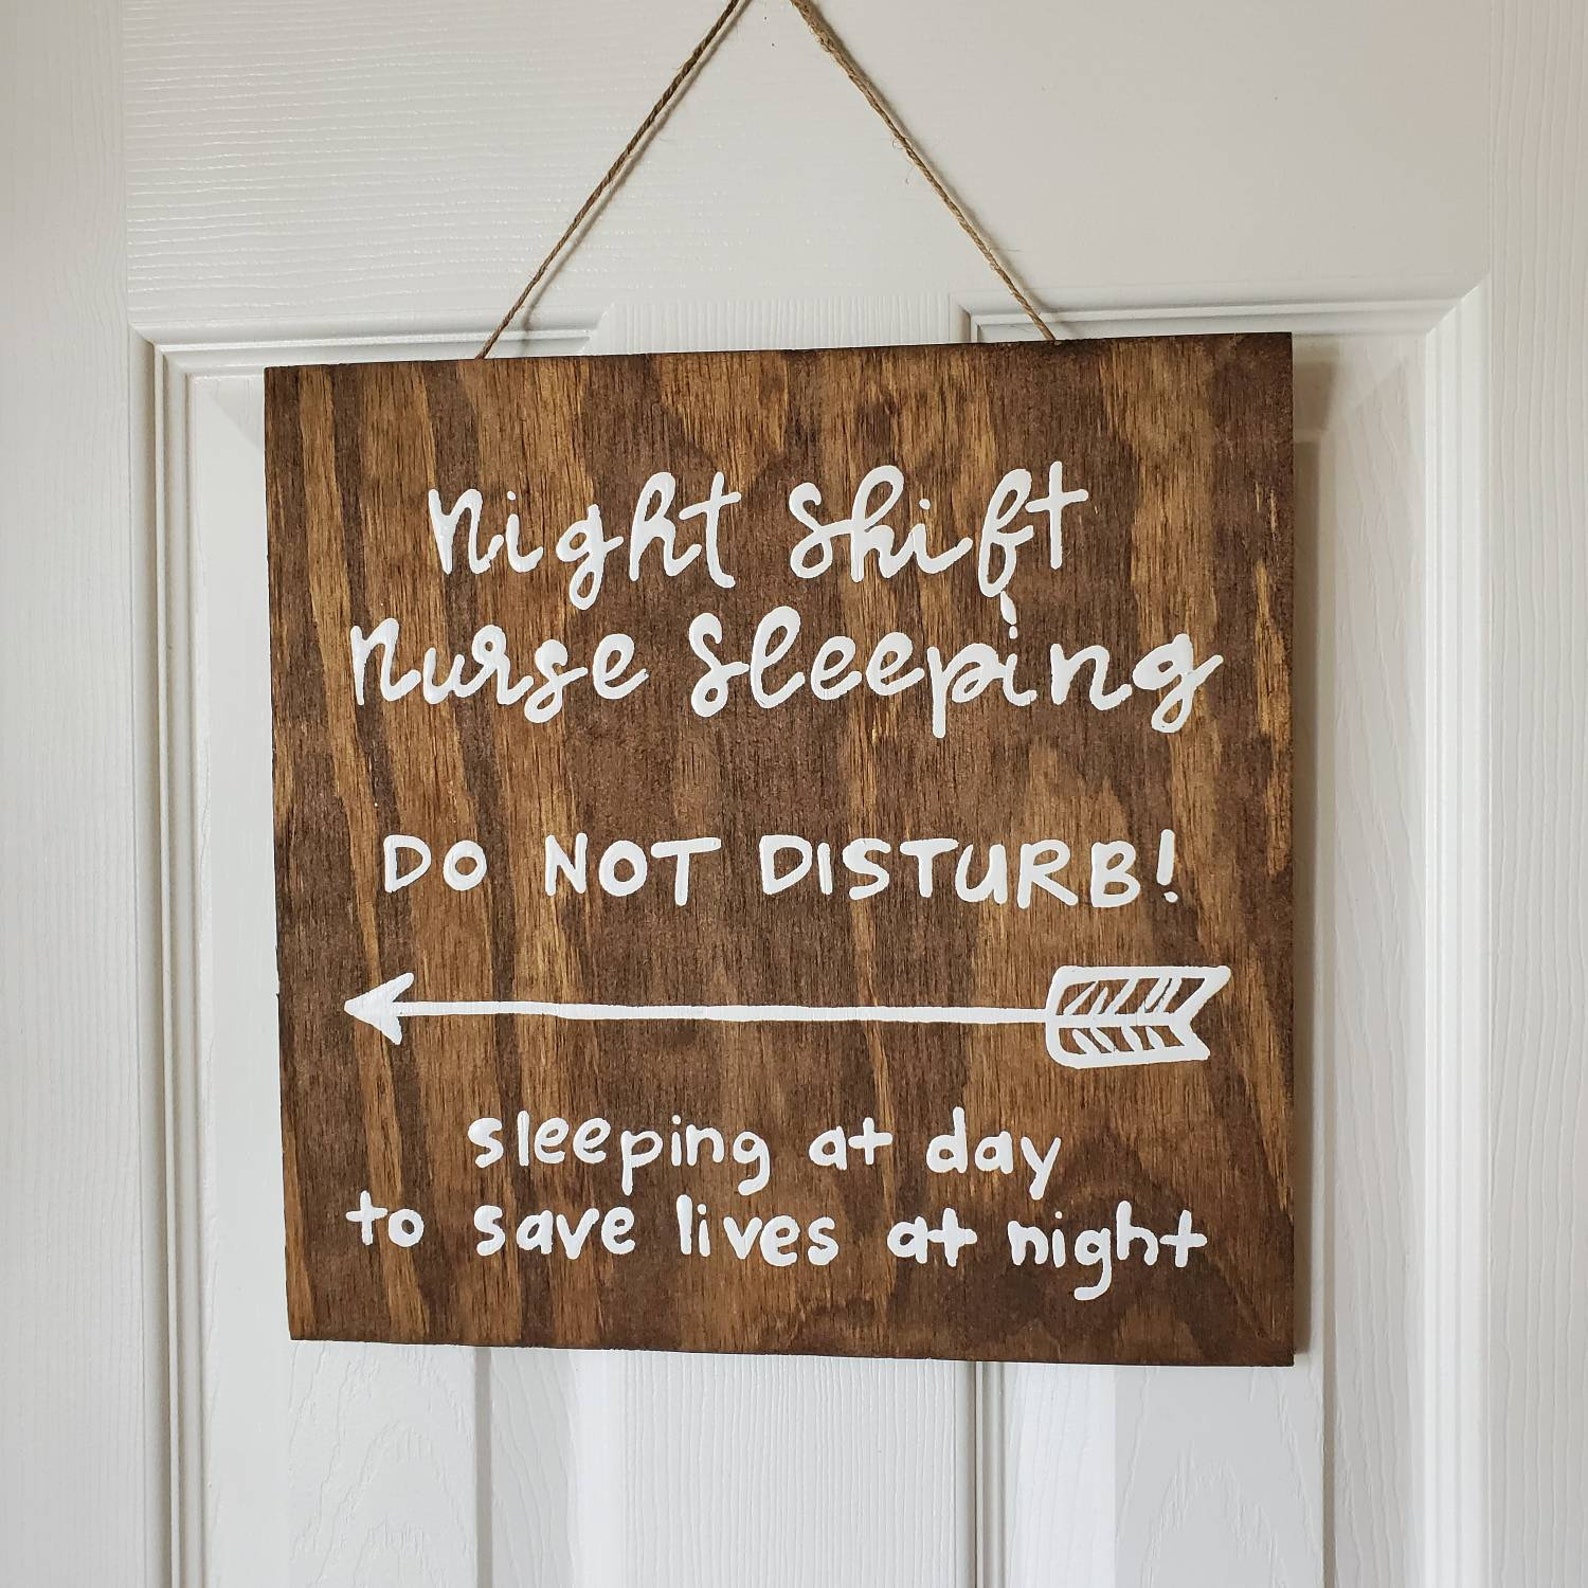 night shift
nurse sleeping
DO NOT DISTURB!
sleeping at day
to save lives at night